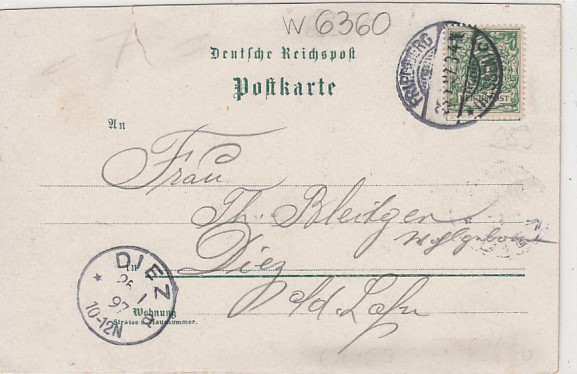 W 6360
Deutsche Reichspost
Postkarte
FRIEDBERG
An
Frau
Th. Bleitgen
Wohlgeboren
in Diez
a/d. Lahn
DIEZ
97
10-12N
Wohnung
Strasse u. Hausnummer.